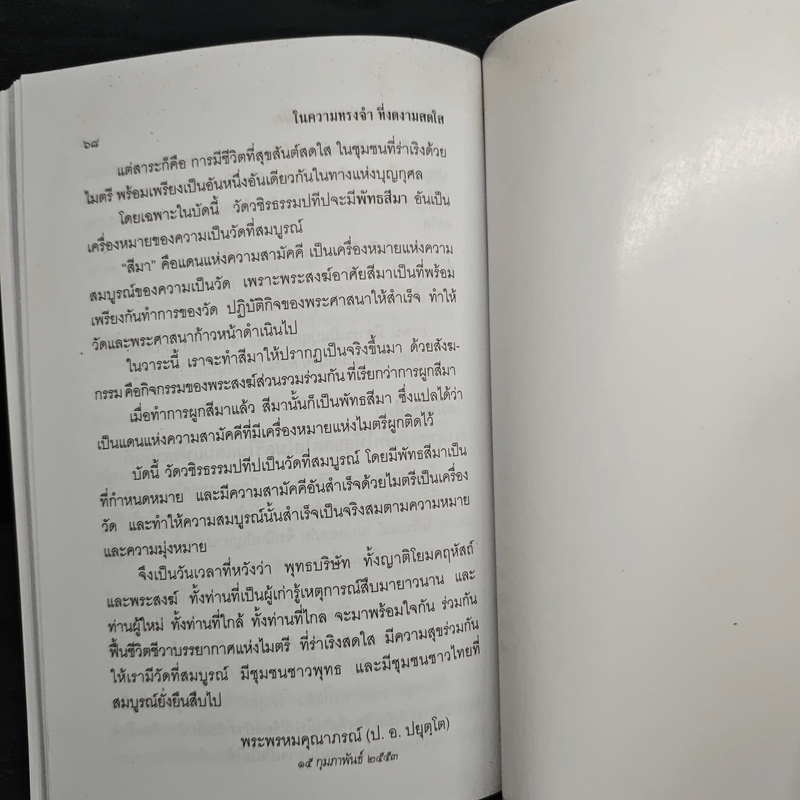 ในความทรงจำ ที่งดงามสดใส
๖๘
แต่สาระก็คือ การมีชีวิตที่สุขสันต์สดใส ในชุมชนที่ร่าเริงด้วย
ไมตรี พร้อมเพรียงเป็นอันหนึ่งอันเดียวกันในทางแห่งบุญกุศล
โดยเฉพาะในบัดนี้ วัดวชิรธรรมปทีปจะมีพัทธสีมา อันเป็น
เครื่องหมายของความเป็นวัดที่สมบูรณ์
“สีมา” คือแดนแห่งความสามัคคี เป็นเครื่องหมายแห่งความ
สมบูรณ์ของความเป็นวัด เพราะพระสงฆ์อาศัยสีมาเป็นที่พร้อม
เพรียงกันทำการของวัด ปฏิบัติกิจของพระศาสนาให้สำเร็จ ทำให้
วัดและพระศาสนาก้าวหน้าดำเนินไป
ในวาระนี้ เราจะทำสีมาให้ปรากฏเป็นจริงขึ้นมา ด้วยสังฆ-
กรรม คือกิจกรรมของพระสงฆ์ส่วนรวมร่วมกัน ที่เรียกว่าการผูกสีมา
เมื่อทำการผูกสีมาแล้ว สีมานั้นก็เป็นพัทธสีมา ซึ่งแปลได้ว่า
เป็นแดนแห่งความสามัคคีที่มีเครื่องหมายแห่งไมตรีผูกติดไว้
บัดนี้ วัดวชิรธรรมปทีปเป็นวัดที่สมบูรณ์ โดยมีพัทธสีมาเป็น
ที่กำหนดหมาย และมีความสามัคคีอันสำเร็จด้วยไมตรีเป็นเครื่อง
วัด และทำให้ความสมบูรณ์นั้นสำเร็จเป็นจริงสมตามความหมาย
และความมุ่งหมาย
จึงเป็นวันเวลาที่หวังว่า พุทธบริษัท ทั้งญาติโยมคฤหัสถ์
และพระสงฆ์ ทั้งท่านที่เป็นผู้เก่ารู้เหตุการณ์สืบมายาวนาน และ
ท่านผู้ใหม่ ทั้งท่านที่ใกล้ ทั้งท่านที่ไกล จะมาพร้อมใจกัน ร่วมกัน
ฟื้นชีวิตชีวาบรรยากาศแห่งไมตรี ที่ร่าเริงสดใส มีความสุขร่วมกัน
ให้เรามีวัดที่สมบูรณ์ มีชุมชนชาวพุทธ และมีชุมชนชาวไทยที่
สมบูรณ์ยั่งยืนสืบไป
พระพรหมคุณาภรณ์ (ป. อ. ปยุตฺโต)
๑๕ กุมภาพันธ์ ๒๕๕๓